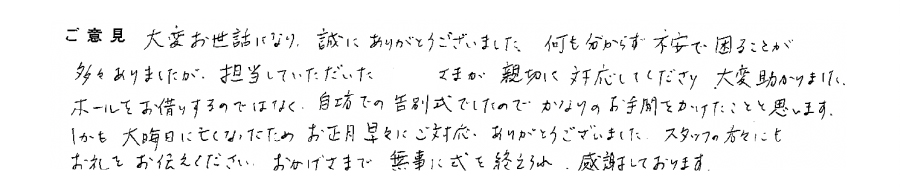 ご意見 大変お世話になり、誠にありがとうございました。何も分からず不安で困ることが
多々ありましたが、担当していただいた さまが親切に対応してくださり大変助かりました。
ホールをお借りするのではなく、自坊での告別式でしたのでかなりのお手間をかけたことと思います。
しかも大晦日に亡くなったためお正月早々にご対応、ありがとうございました。スタッフの方々にも
お礼をお伝えください。おかげさまで無事に式を終えられ、感謝しております。